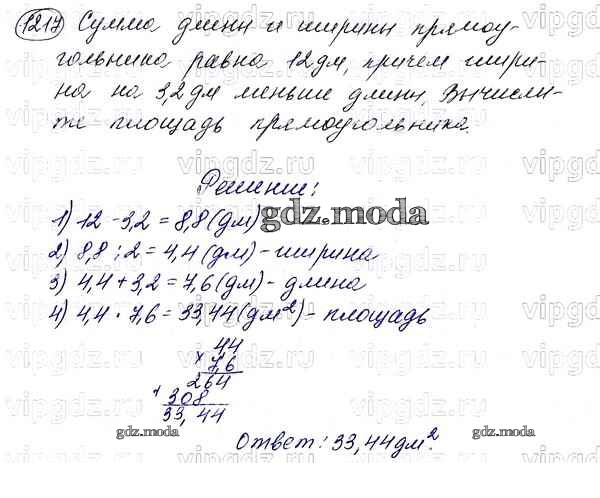 1217) Сумма длины и ширины прямоу-
гольника равна 12дм, причем шири-
на на 3,2дм меньше длины. Вычисли-
те площадь прямоугольника.
Решение:
1) 12 - 3,2 = 8,8 (дм)
gdz.moda
2) 8,8 : 2 = 4,4 (дм) - ширина
3) 4,4 + 3,2 = 7,6 (дм) - длина
4) 4,4 · 7,6 = 33,44 (дм²) - площадь
44
× 7,6
264
+ 308
33,44
gdz.moda
Ответ: 33,44дм².
gdz.moda
vipgdz.ru